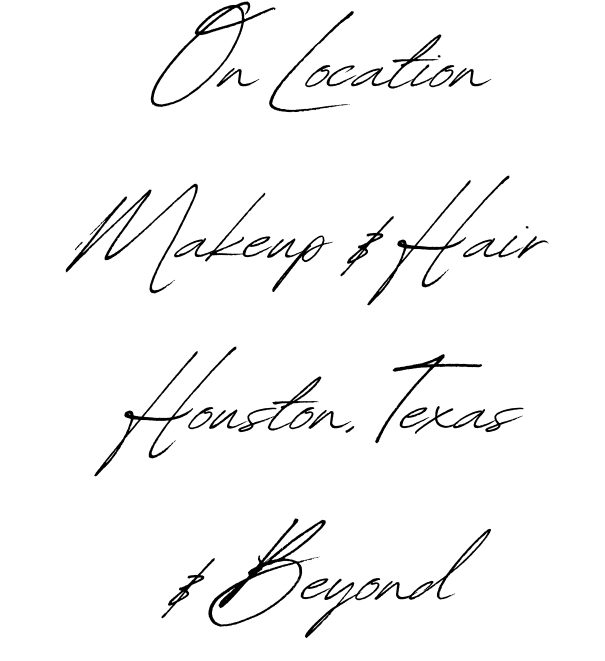 On Location
Makeup & Hair
Houston, Texas
& Beyond